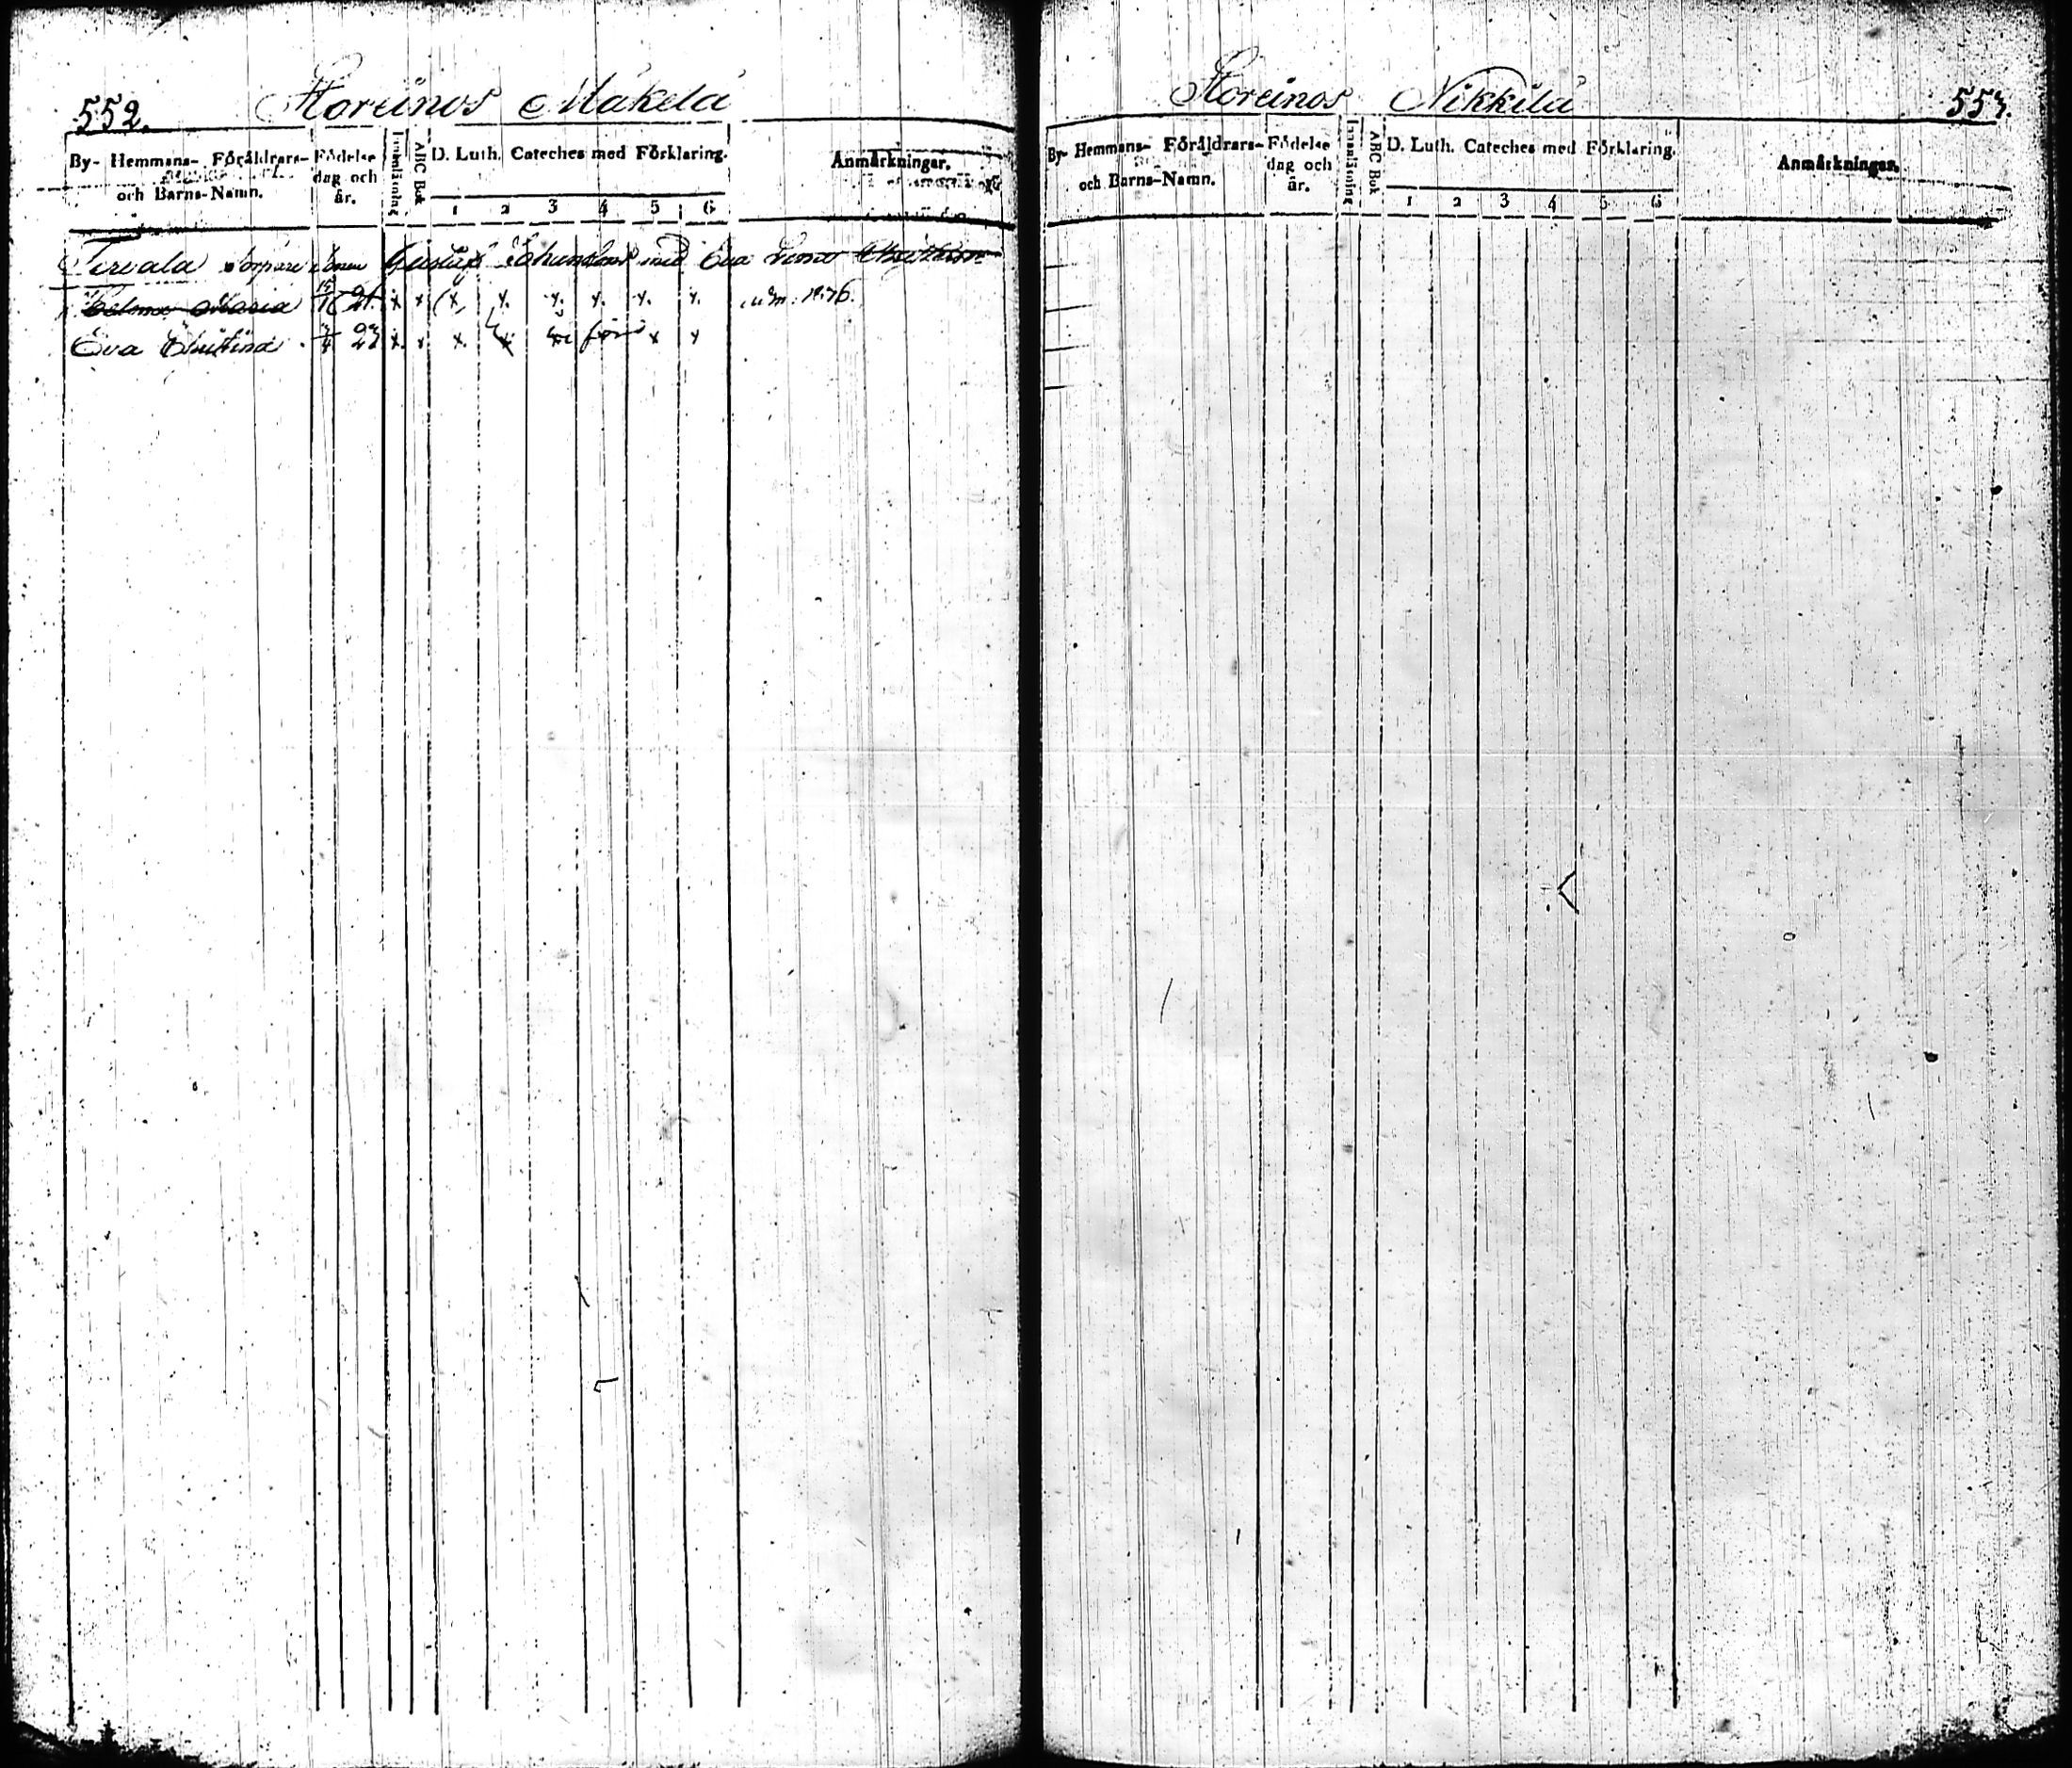 552. Horeinos Mäkelä
By- Hemmans- Föräldrars- och Barns-Namn.
Födelse dag och år.
Innanläsning
ABC Bok
D. Luth. Cateches med Förklaring.
1 2 3 4 5 6
Anmärkningar.
Torpare Sonen Gustaf Johansson med Eva
Maria 21. x x x x x x x x 1836.
Eva Christina 23 x x x x x x
Horeinos Nikkilä 553.
By- Hemmans- Föräldrars- och Barns-Namn.
Födelse dag och år.
Innanläsning
ABC Bok
D. Luth. Cateches med Förklaring.
1 2 3 4 5 6
Anmärkningar.